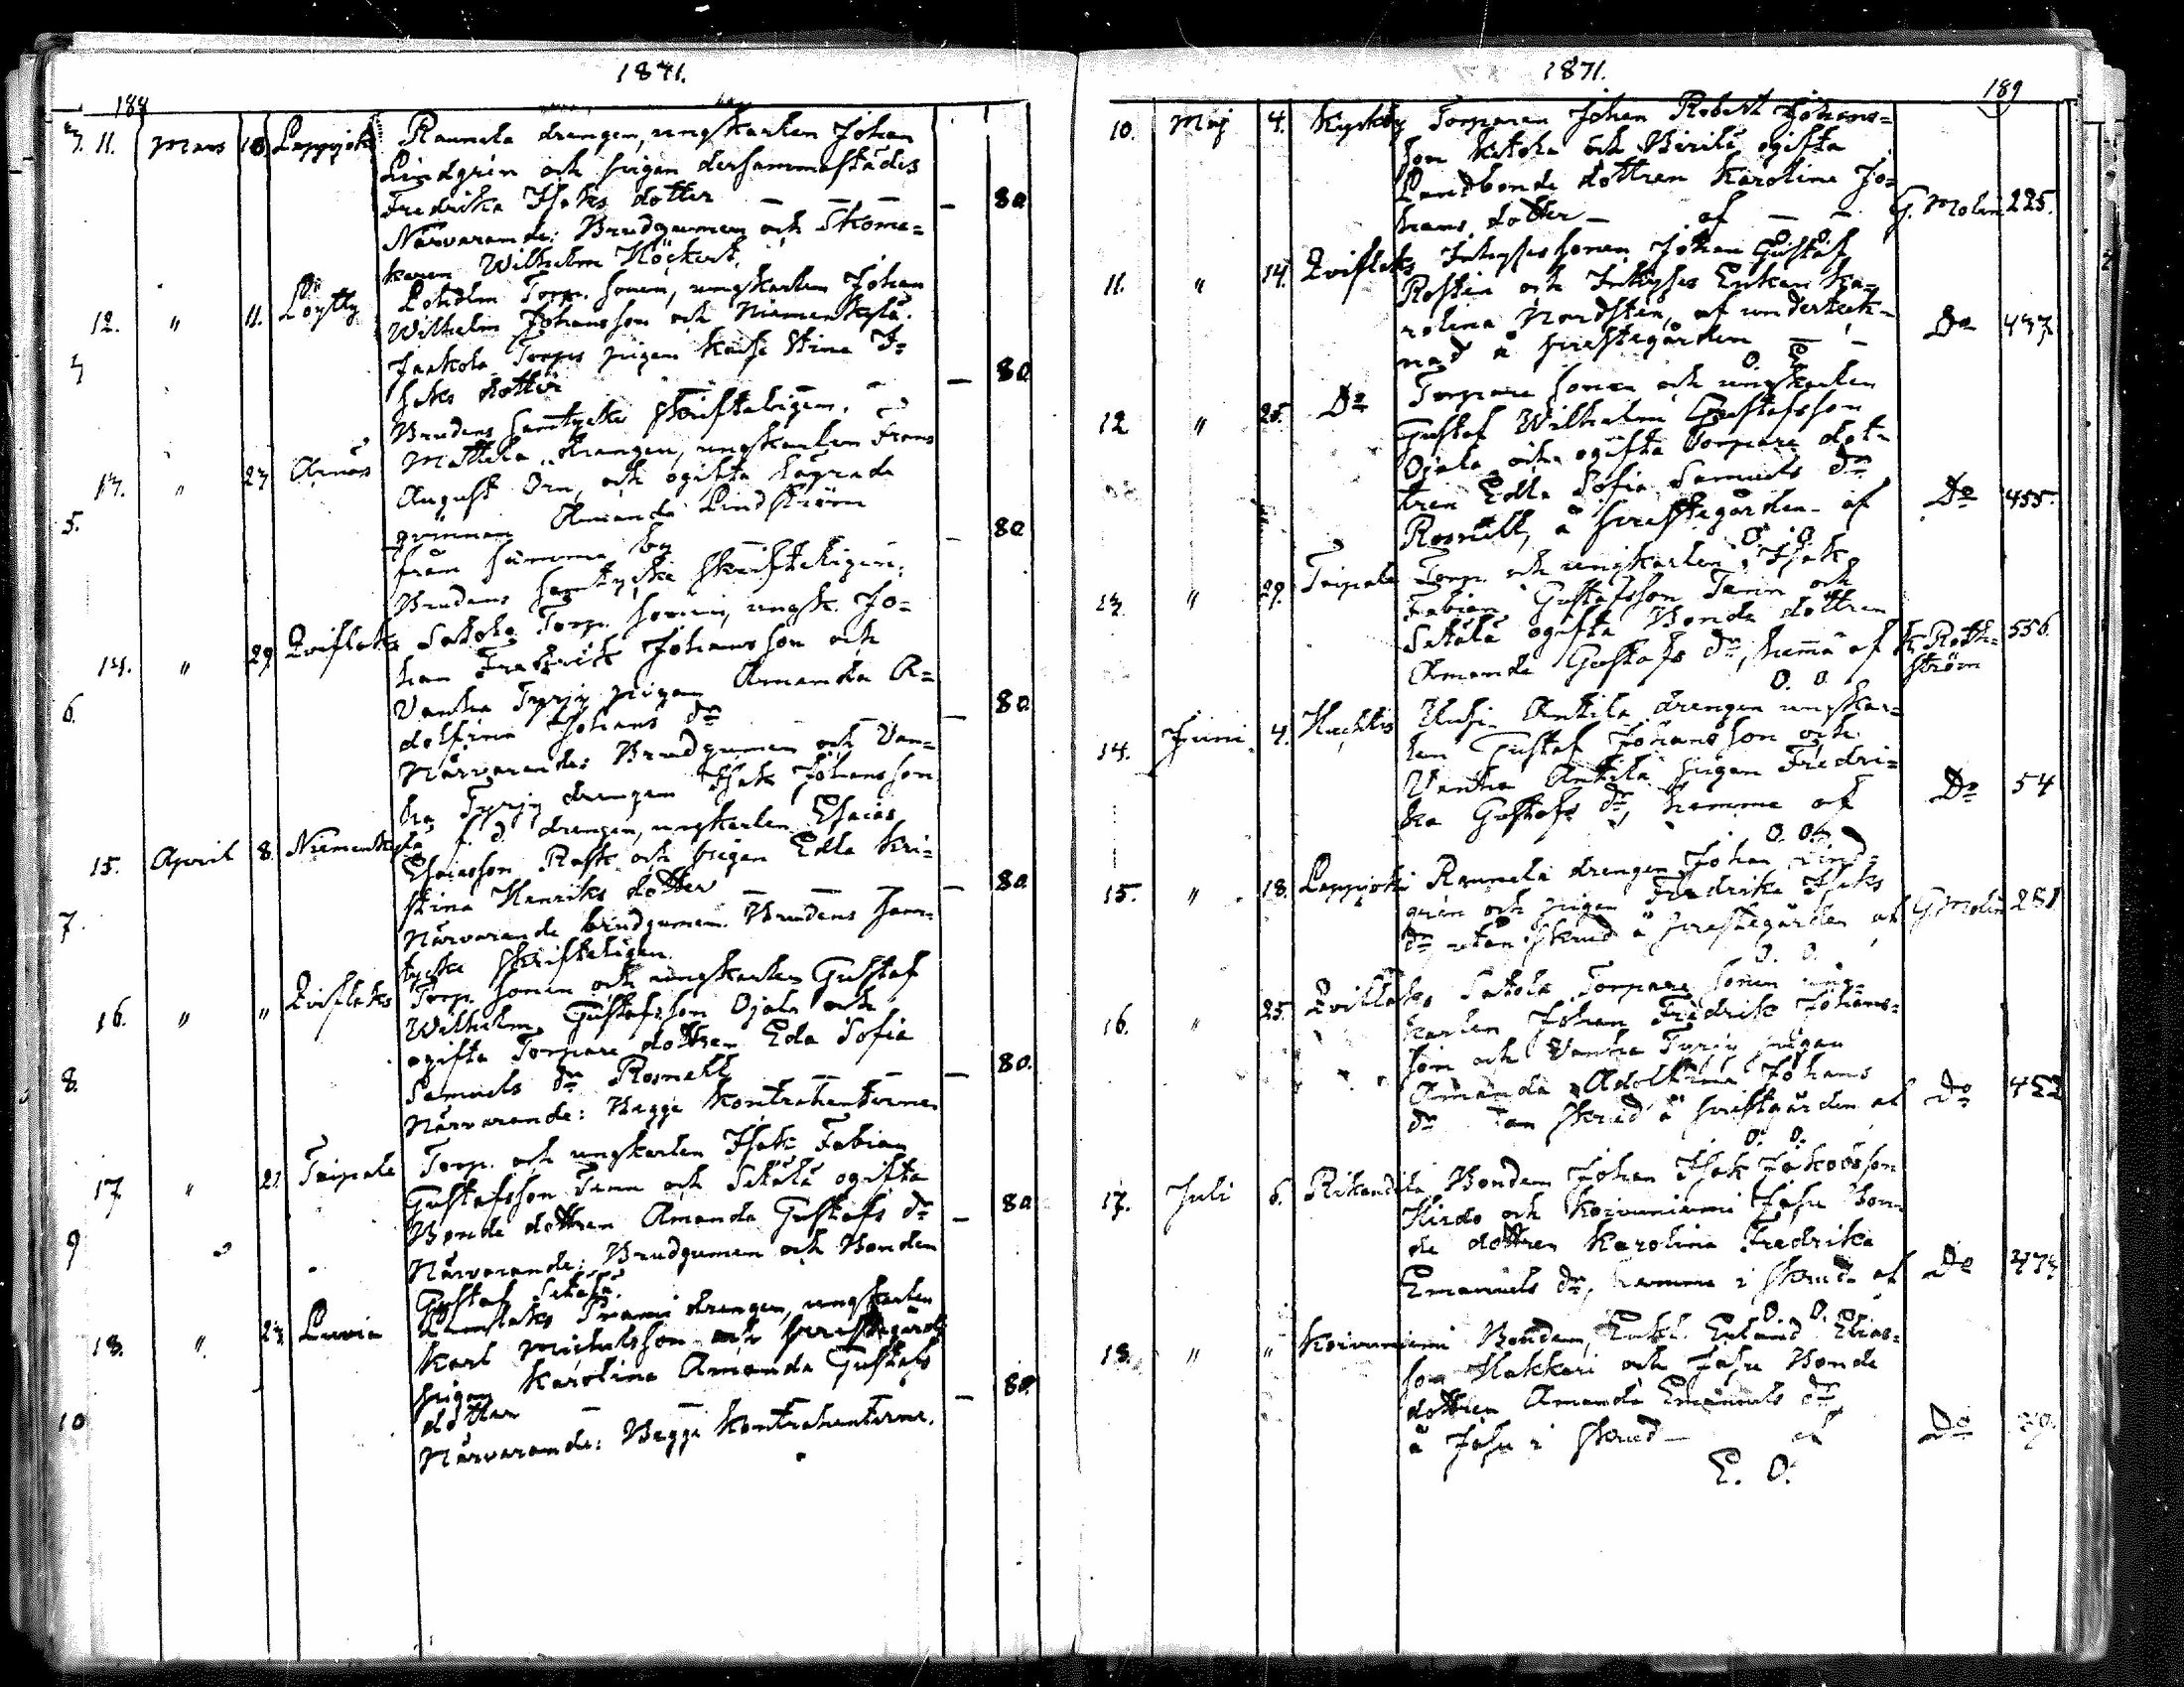 1871.
188
11. Mars 10 Lappijoki Raumela drengen, ungkarlen Johan
Lindgrén och pigan dersammastädes
Fredrika Isaks dotter — — — — 80
Närvarande: Brudgumen och Skoma=
karen Wilhelm Höckert.
12. " 11. Löytty Torp. sonen, ungkarlen Johan
Wilhelm Johansson och Niemenkylä
Jaakola Torps pigan Stina I=
saks dotter — 80
Brudens samtycke skrifteligen.
13. " 27 Arnäs Mattila drengen, ungkarlen Frans
August Örn, och ogifta
qvinnan Amanda Lindström
från samma by — — 80
Brudens samtycke skrifteligen.
14. " 29 Qviflaks Satola Torp. sonen, ungk. Jo=
han Fredrik Johansson och
Vanha Tyrjy pigan Amanda A=
dolfina Johans dr — — 80
Närvarande: Brudgumen och Van=
ha Tyrjy drengen Isak Johansson
15. April 8. Niemenkylä f. d. drengen, ungkarlen Esaias
Esaiasson Rask och pigan Edla Kri=
stina Henriks dotter — — — — 80
Närvarande brudgumen. Brudens sam=
tycke skrifteligen.
16. " " Qviflaks Torp. sonen och ungkarlen Gustaf
Wilhelm Gustafsson Ojala och
ogifta Torpare dottren Eda Sofia
Samuels dr Rosnell — — — 80.
Närvarande: Bägge Kontrahenterne
17 " 21. Taipale Torp. och ungkarlen Isak Fabian
Gustafsson Tann och Sitälä ogifta
Bonde dottren Amanda Gustafs dr — 80
Närvarande: Brudgumen och Bonden
Gustaf Sitälä.
18. " 23 Luvia drengen, ungkarlen
Karl Michelsson och prestgårds
pigan Karolina Amanda Gustafs
dotter — — — 80
Närvarande: Bägge Kontrahenterne.
1871.
189
10. Maj 4. Kyrkby Torparen Johan Robert Johans=
son Katola och Birilä ogifta
Landbonde dottren Karolina Jo=
hans dotter — af — — G. Molin 225.
11. " 14. Qviflaks Inhyses sonen Johan Gustaf
Rostin och Inhyses Enkan Ka=
rolina Nordsten, af underteck=
nad å prestegården — — Do 437
12 " 25. Do Torpare sonen och ungkarlen
Gustaf Wilhelm Gustafsson
Ojala och ogifta Torpare dot=
tren Edla Sofia Samuels dr
Rosnell, å prestegården af Do 455.
13. " 29. Taipale Torp. och ungkarlen Isak
Fabian Gustafsson Tann och
Sitälä ogifta Bonde dottren
Amanda Gustafs dr, hemma af K. Roth= 556
ström
14. Juni 4. Huhta Antila drengen ungkar=
len Gustaf Johansson och
Vanha Antila pigan Fredri=
ka Gustafs dr, hemma af Do 54
15. " 18. Lappijoki Raumela drengen Johan Lind=
grén och pigan Fredrika Isaks
dr utan skrud å prestegården af G Molin 281
16. " 25. Qviflaks Satola Torpare sonen ung=
karlen Johan Fredrik Johans=
son och Vanha Tyrjy pigan
Amanda Adolfina Johans
dr utan skrud å prestgården af Do 452
17. Juli 6. Rikandila Bonden Johan Isak Jakobsson
Hirdo och Koivuniemi Jasu Bon=
de dottren Karolina Fredrika
Emanuels dr, hemma i skrud af Do
18. " " Koivuniemi Bonden, Enkl. Erland Elias=
son Hakkari och Jasu Bonde
dottren Amanda Emanuels dr
å Jasu i skrud — af Do
E. O.